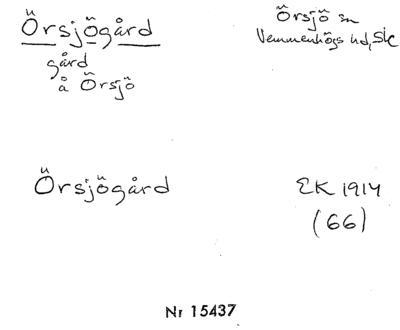 Örsjögård
gård
å Örsjö
Örsjö sn
Vemmenhögs hd, Sk
Örsjögård
EK 1914
(66)
Nr 15437